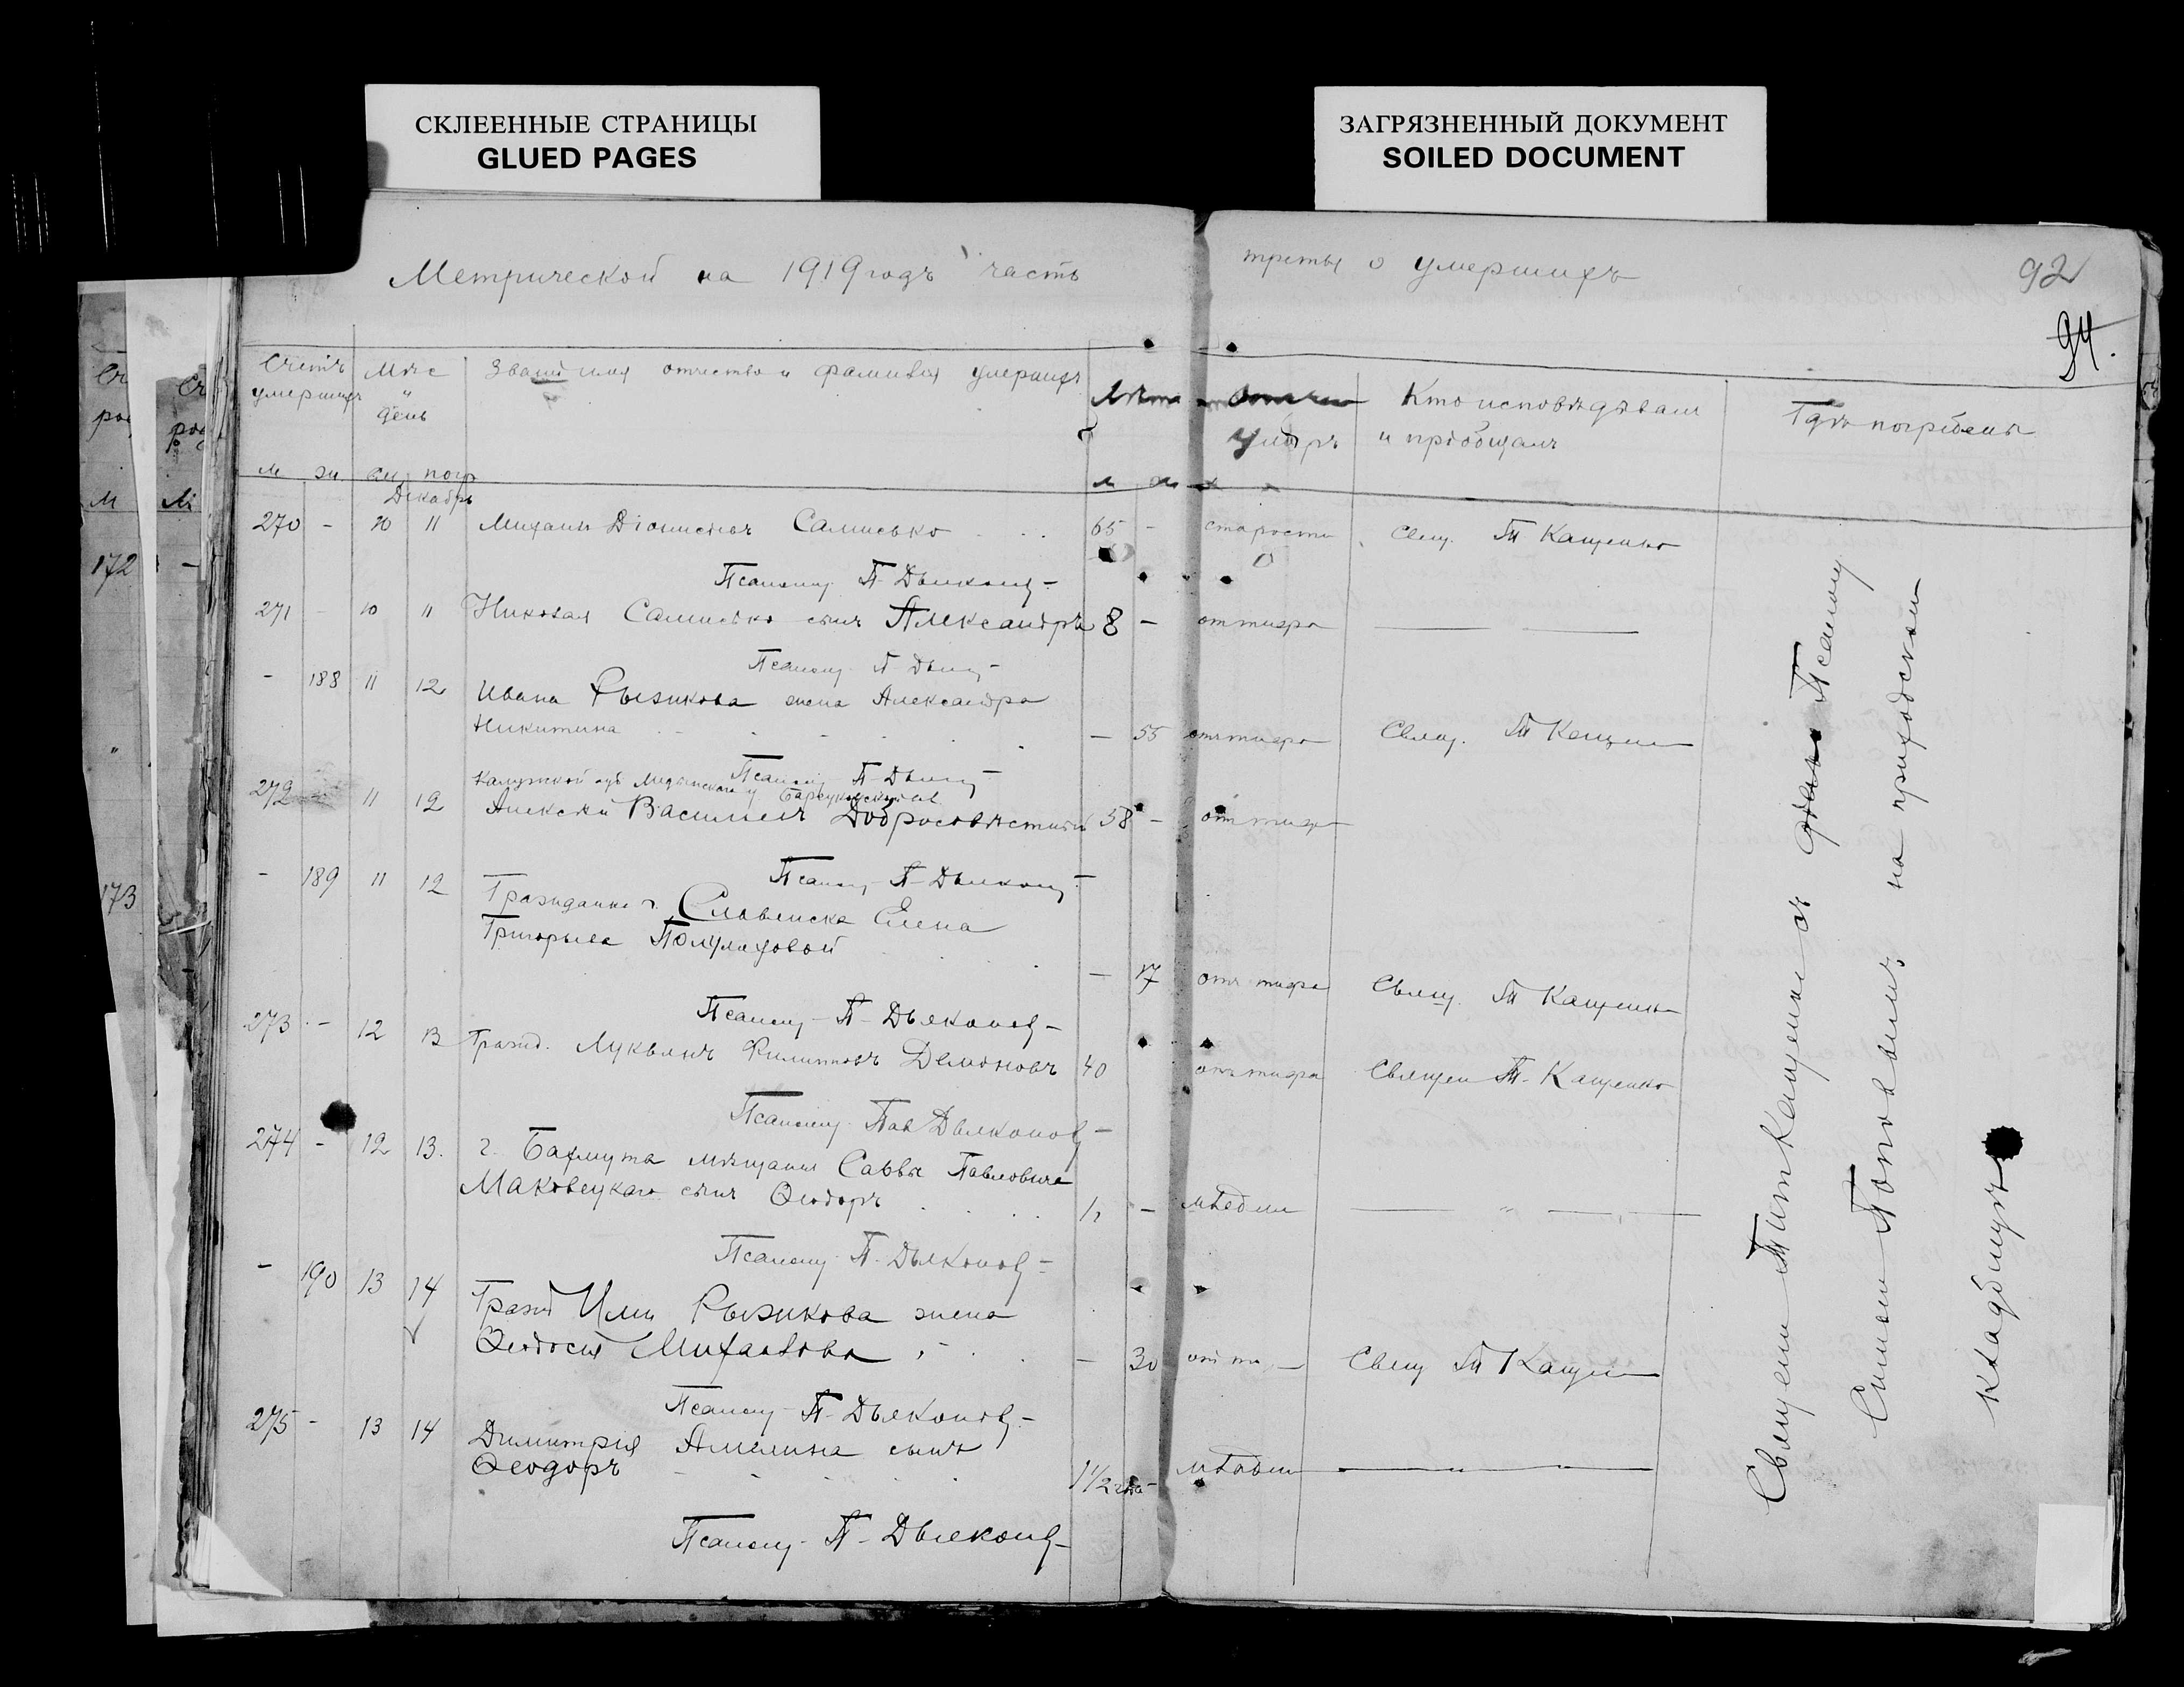 СКЛЕЕННЫЕ СТРАНИЦЫ
GLUED PAGES
ЗАГРЯЗНЕННЫЙ ДОКУМЕНТ
SOILED DOCUMENT
Метрической на 1919 годъ часть
третья о умершихъ
92
94.
Счетъ умершихъ
Мѣс и день
имя отчество и фамилія умершихъ
Лѣта
Отъ чего умеръ
Кто исповѣдывалъ и пріобщалъ
Гдѣ погребены
м ж. ум погр
м ж
Декабрь
270 - 10 11 Михаилъ Діонисіевъ Самисько 65 - старости Свящ. Т Кащенко
Псаломщ. П. Дьяконов
271 - 10 11 Николая Самисько сынъ Александръ 8 - от тифа
Псаломщ. П. Дьяк
- 188 11 12 Ивана Рызикова жена Александра
Никитина - 55 отъ тифа Свящ. Т Кащен
Псаломщ П. Дьяк
Калужской губ Медынскаго у
272 11 12 Алексѣй Васильевъ Добросовѣстный 58 - от тифа
Псаломщ П. Дьяконов
- 189 11 12 Гражданка г. Славянска Елена
Григорьева - 17 отъ тифа Свящ. Т Кащенко
Псаломщ П. Дьяконов
273 - 12 13 Гражд. Лукьянъ Филипповъ Демоновъ 40 отъ тифа Священ Т. Кащенко
Псаломщ. Пав Дьяконов
274 - 12 13. г. Бахмута мѣщанина Саввы Павловича
Маковецкаго сынъ Ѳеодоръ -
Псаломщ П. Дьяконов
- 190 13 14 Гражд Ильи Рызикова жена
Ѳеодосія Михайлова - 30 Свящ Т Кащен
Псаломщ П. Дьяконов
275 - 13 14 Димитрія Амелина сынъ
Ѳеодоръ 1 1/2
Псаломщ. П. Дьяконов
Священ Титъ Кащенко съ Псаломщ
на приходскомъ
кладбищѣ
172
173